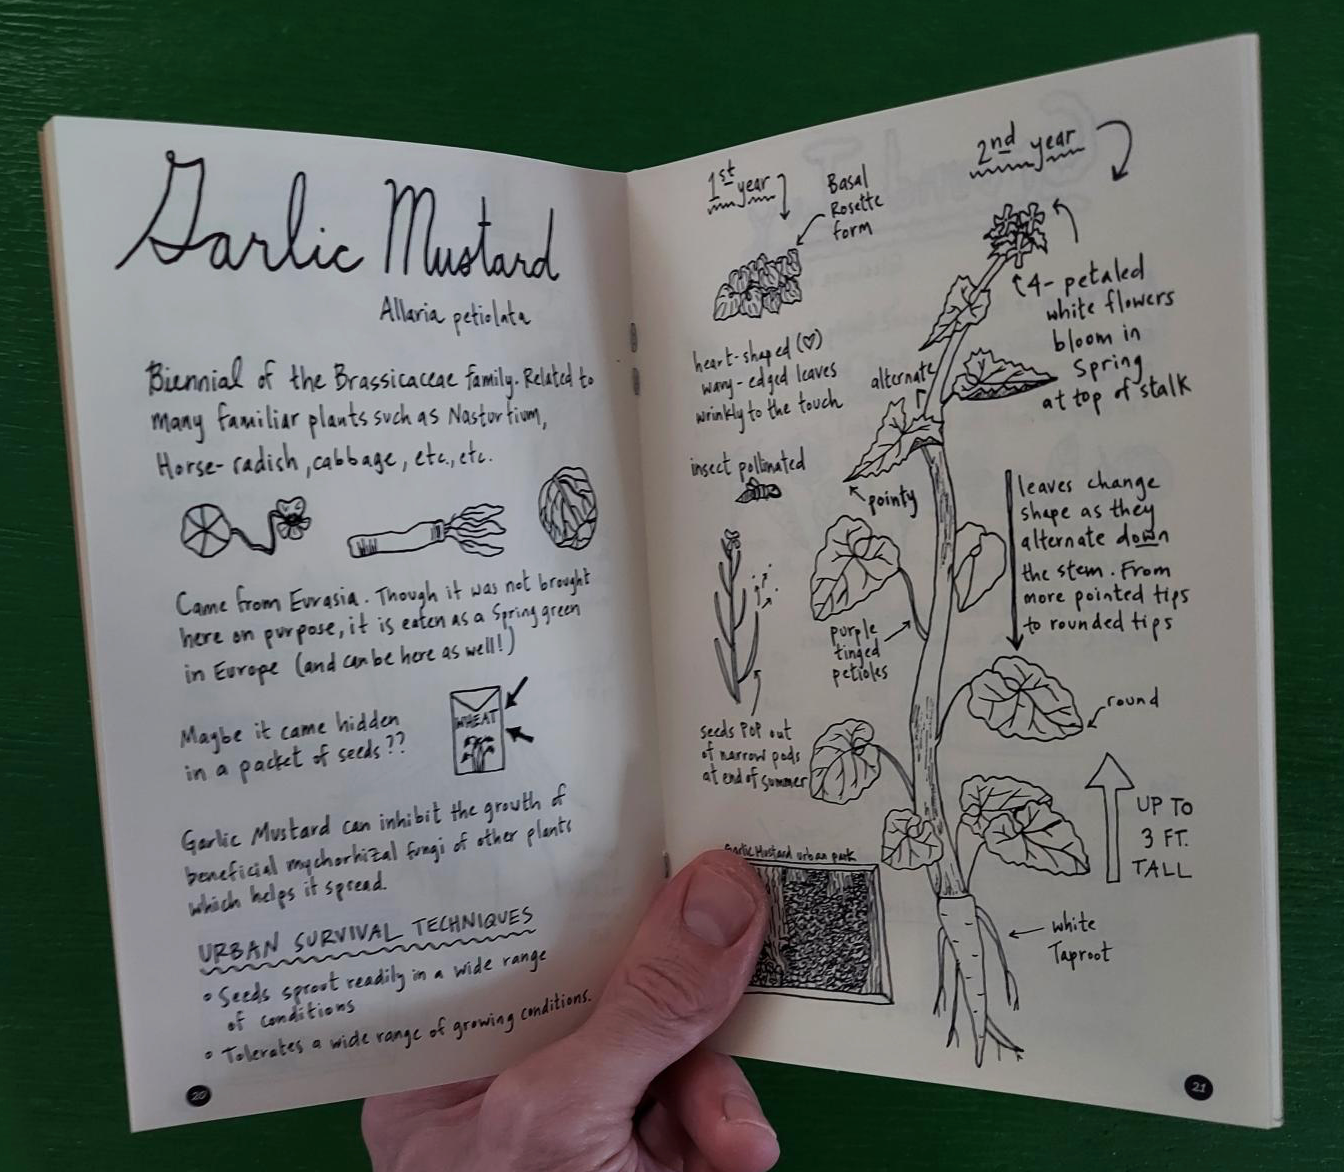 Garlic Mustard
Allaria petiolata
Biennial of the Brassicaceae family. Related to
many familiar plants such as Nasturtium,
Horse-radish, cabbage, etc., etc.
Came from Eurasia. Though it was not brought
here on purpose, it is eaten as a Spring green
in Europe (and can be here as well!)
Maybe it came hidden
in a packet of seeds??
WHEAT
Garlic Mustard can inhibit the growth of
beneficial mychorhizal fungi of other plants
which helps it spread.
URBAN SURVIVAL TECHNIQUES
• Seeds sprout readily in a wide range
of conditions
• Tolerates a wide range of growing conditions.
20
1st year
Basal
Rosette
form
2nd year
4-petaled
white flowers
bloom in
Spring
at top of stalk
heart-shaped (♡)
wavy-edged leaves
wrinkly to the touch
alternate
insect pollinated
pointy
leaves change
shape as they
alternate down
the stem. From
more pointed tips
to rounded tips
purple
tinged
petioles
seeds POP out
of narrow pods
at end of summer
round
UP TO
3 FT.
TALL
Garlic Mustard urban park
white
Taproot
21